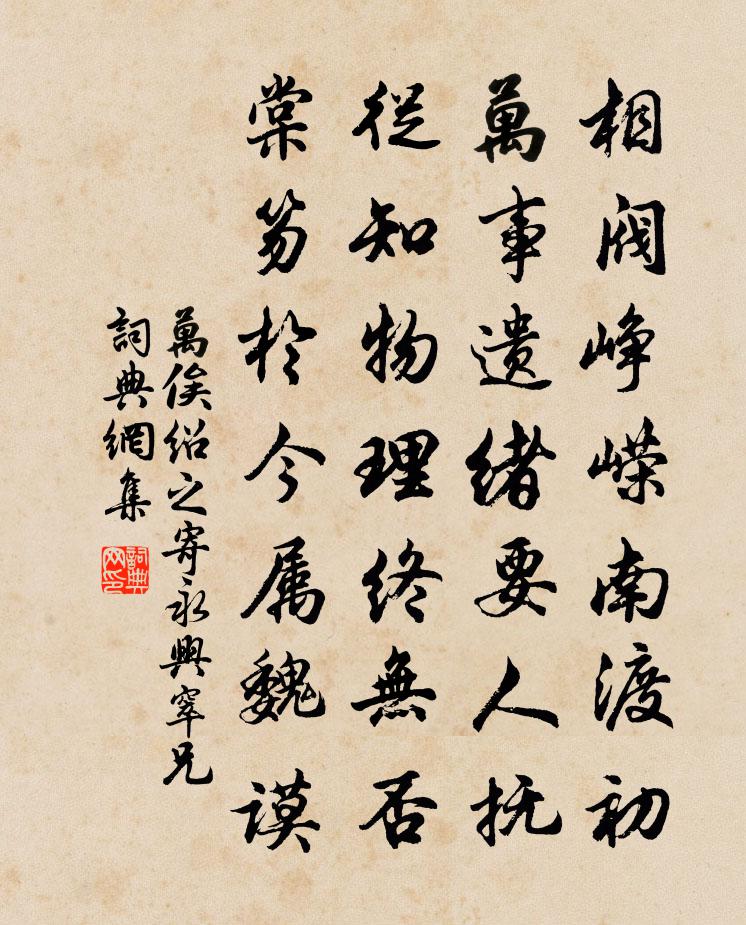 相閥峥嵘南渡初
萬事遺緒要人扶
從知物理終無否
棠笏於今属魏謨
萬俟紹之寄永興宰兄
詞典網集
詞典网印